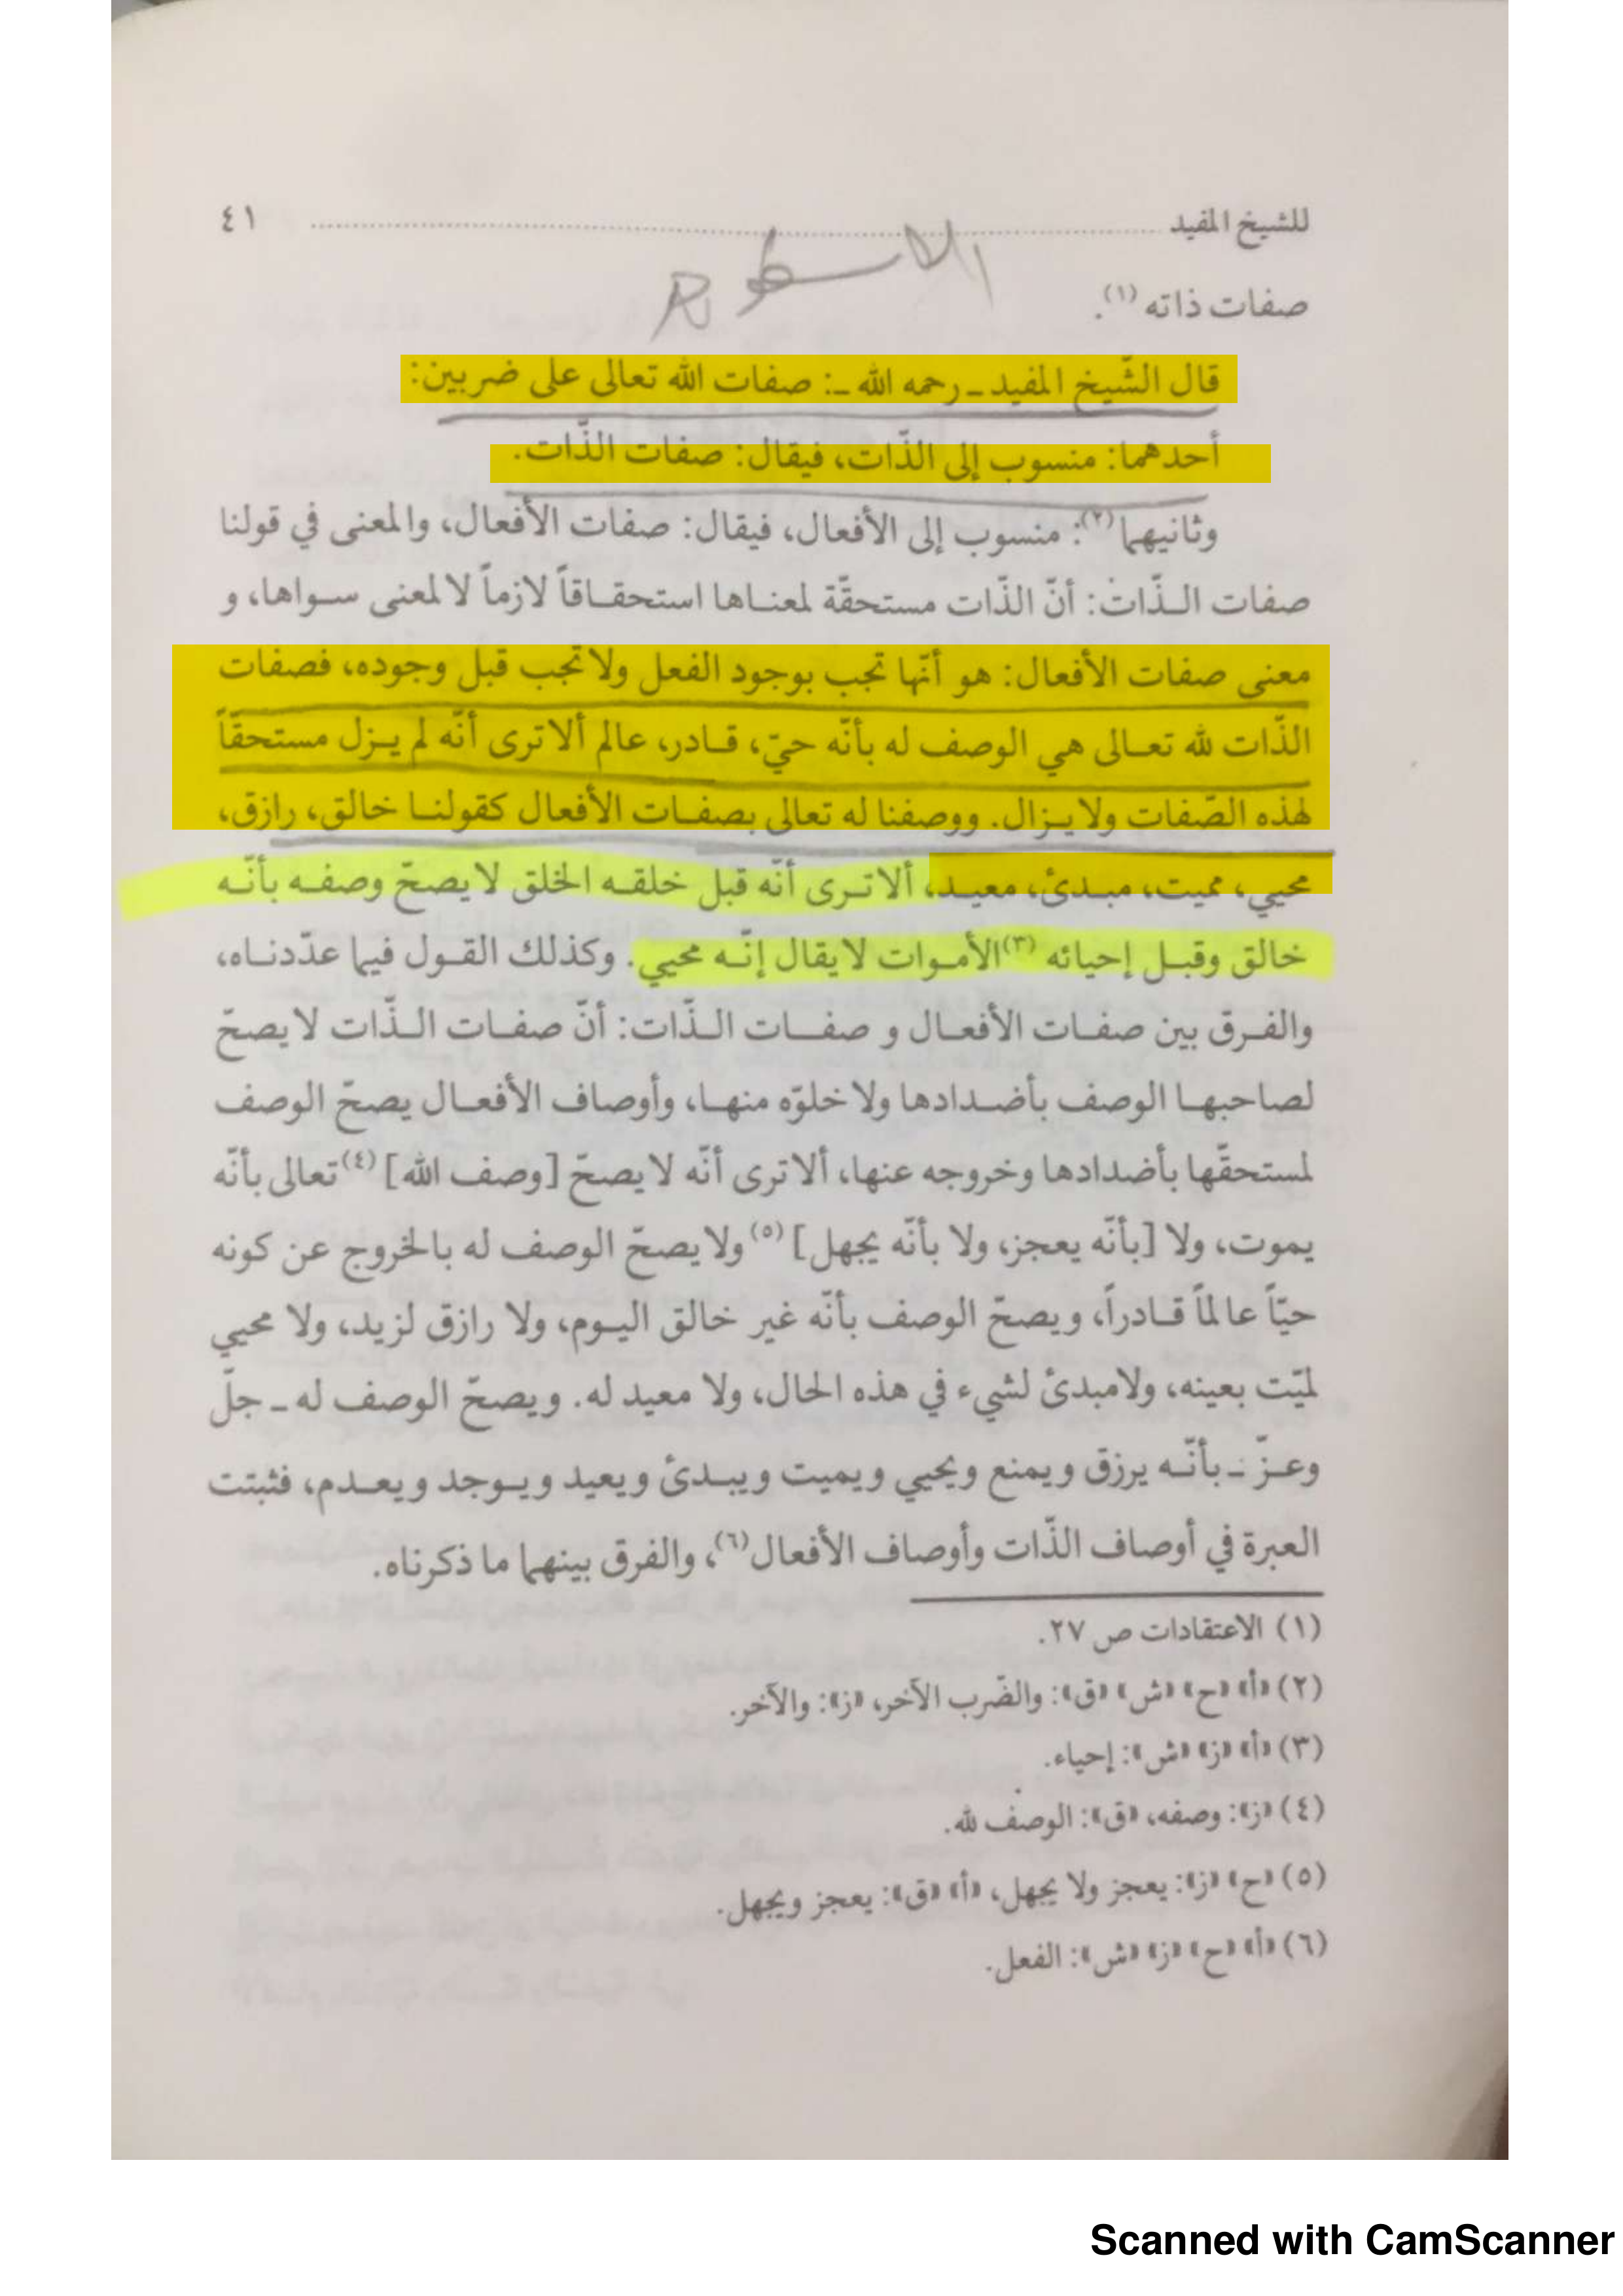 للشيخ المفيد ........................................................ ٤١
صفات ذاته (١).
قال الشّيخ المفيد ـ رحمه الله ـ: صفات الله تعالى على ضربين:
أحدهما: منسوب إلى الذّات، فيقال: صفات الذّات.
وثانيهما(٢): منسوب إلى الأفعال، فيقال: صفات الأفعال، والمعنى في قولنا
صفات الـذّات: أنّ الذّات مستحقّة لمعناها استحقاقاً لازماً لا لمعنى سواها، و
معنى صفات الأفعال: هو أنّها تجب بوجود الفعل ولا تجب قبل وجوده، فصفات
الذّات لله تعالى هي الوصف له بأنّه حيّ، قادر، عالم ألا ترى أنّه لم يزل مستحقّاً
لهذه الصّفات ولا يزال. ووصفنا له تعالى بصفات الأفعال كقولنا خالق، رازق،
محيي، مميت، مبدئ، معيد، ألا ترى أنّه قبل خلقه الخلق لا يصحّ وصفه بأنّه
خالق وقبل إحيائه (٣)الأموات لا يقال إنّه محيي. وكذلك القول فيما عدّدناه،
والفرق بين صفات الأفعال و صفات الذّات: أنّ صفات الذّات لا يصحّ
لصاحبها الوصف بأضدادها ولا خلوّه منها، وأوصاف الأفعال يصحّ الوصف
لمستحقّها بأضدادها وخروجه عنها، ألا ترى أنّه لا يصحّ [وصف الله] (٤) تعالى بأنّه
يموت، ولا [بأنّه يعجز، ولا بأنّه يجهل] (٥) ولا يصحّ الوصف له بالخروج عن كونه
حيّاً عالماً قادراً، ويصحّ الوصف بأنّه غير خالق اليوم، ولا رازق لزيد، ولا محيي
لميّت بعينه، ولا مبدئ لشيء في هذه الحال، ولا معيد له. ويصحّ الوصف له ـ جلّ
وعزّ ـ بأنّه يرزق ويمنع ويحيي ويميت ويبدئ ويعيد ويوجد ويعدم، فثبتت
العبرة في أوصاف الذّات وأوصاف الأفعال(٦)، والفرق بينهما ما ذكرناه.
(١) الاعتقادات ص ٢٧.
(٢) «أ» «ح» «ش» «ق»: والضّرب الآخر، «ز»: والآخر.
(٣) «أ» «ز» «ش»: إحياء.
(٤) «ز»: وصفه، «ق»: الوصف لله.
(٥) «ح» «ز»: يعجز ولا يجهل، «أ» «ق»: يعجز ويجهل.
(٦) «أ» «ح» «ز» «ش»: الفعل.
Scanned with CamScanner